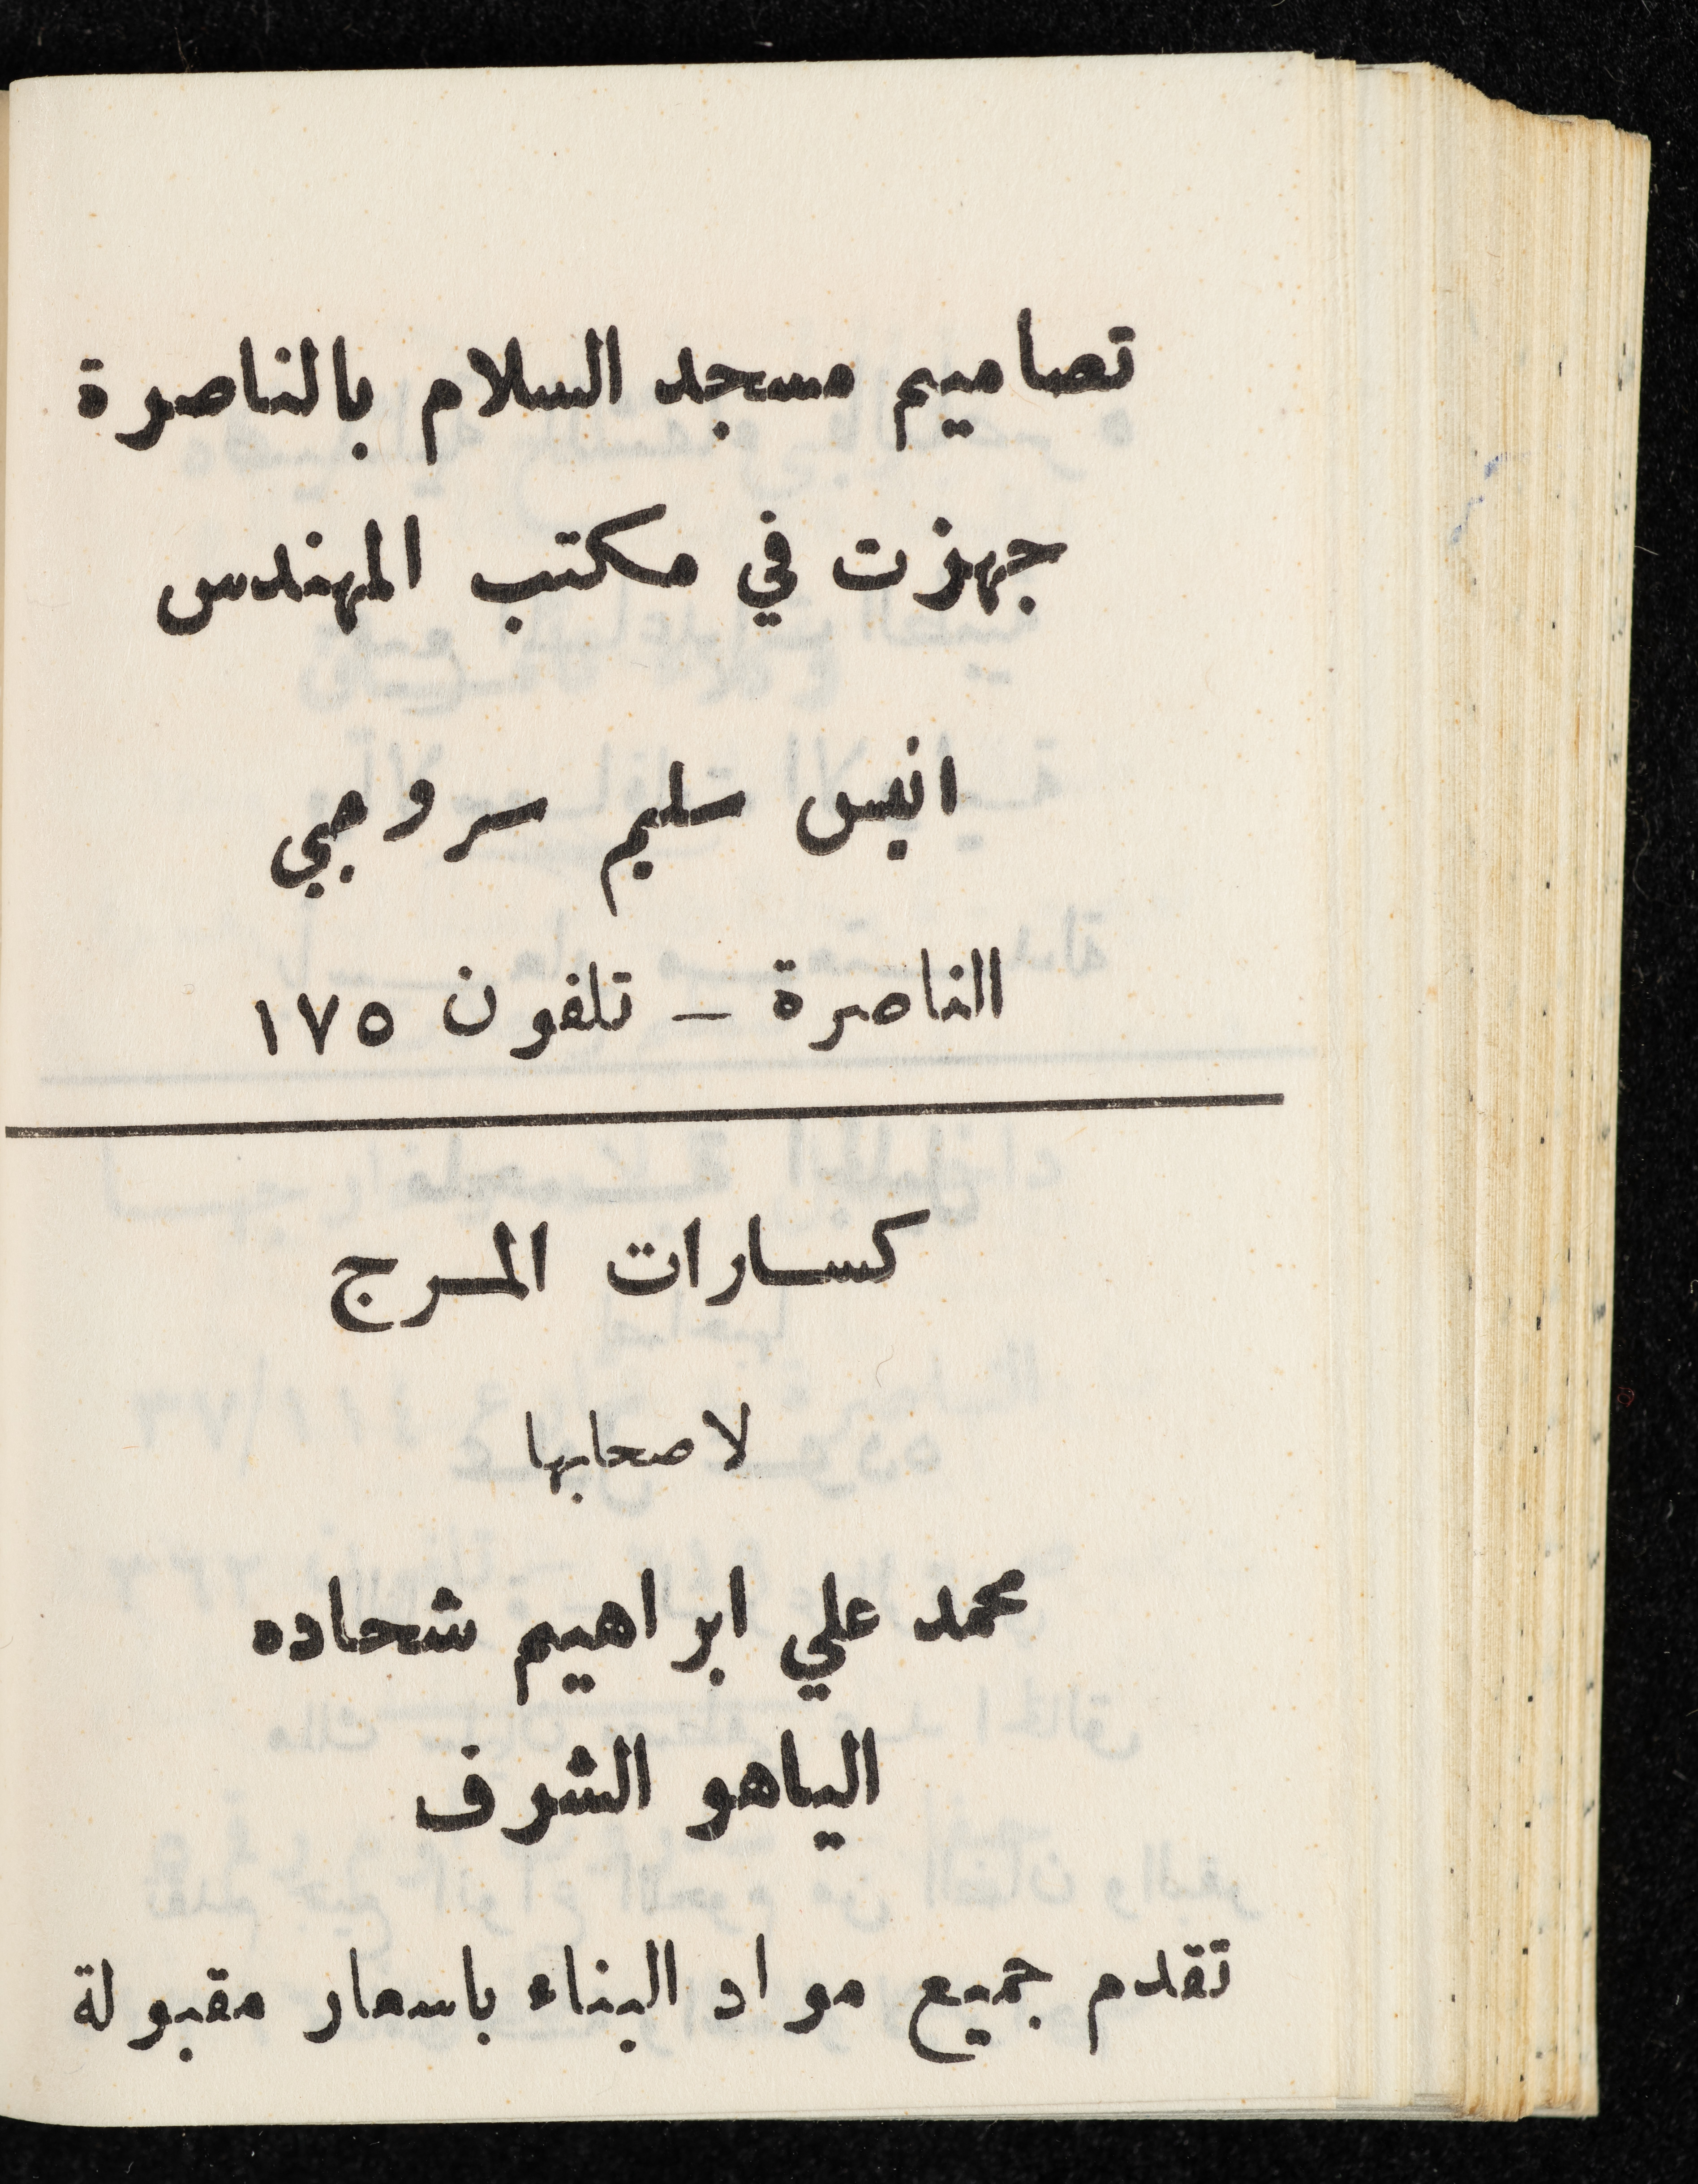 تصاميم مسجد السلام بالناصرة
جهزت في مكتب المهندس
انيس سليم سروجي
الناصرة - تلفون ١٧٥
كسارات المرج
لاصحابها
محمد علي ابراهيم شحاده
الياهو الشرف
تقدم جميع مواد البناء باسعار مقبولة